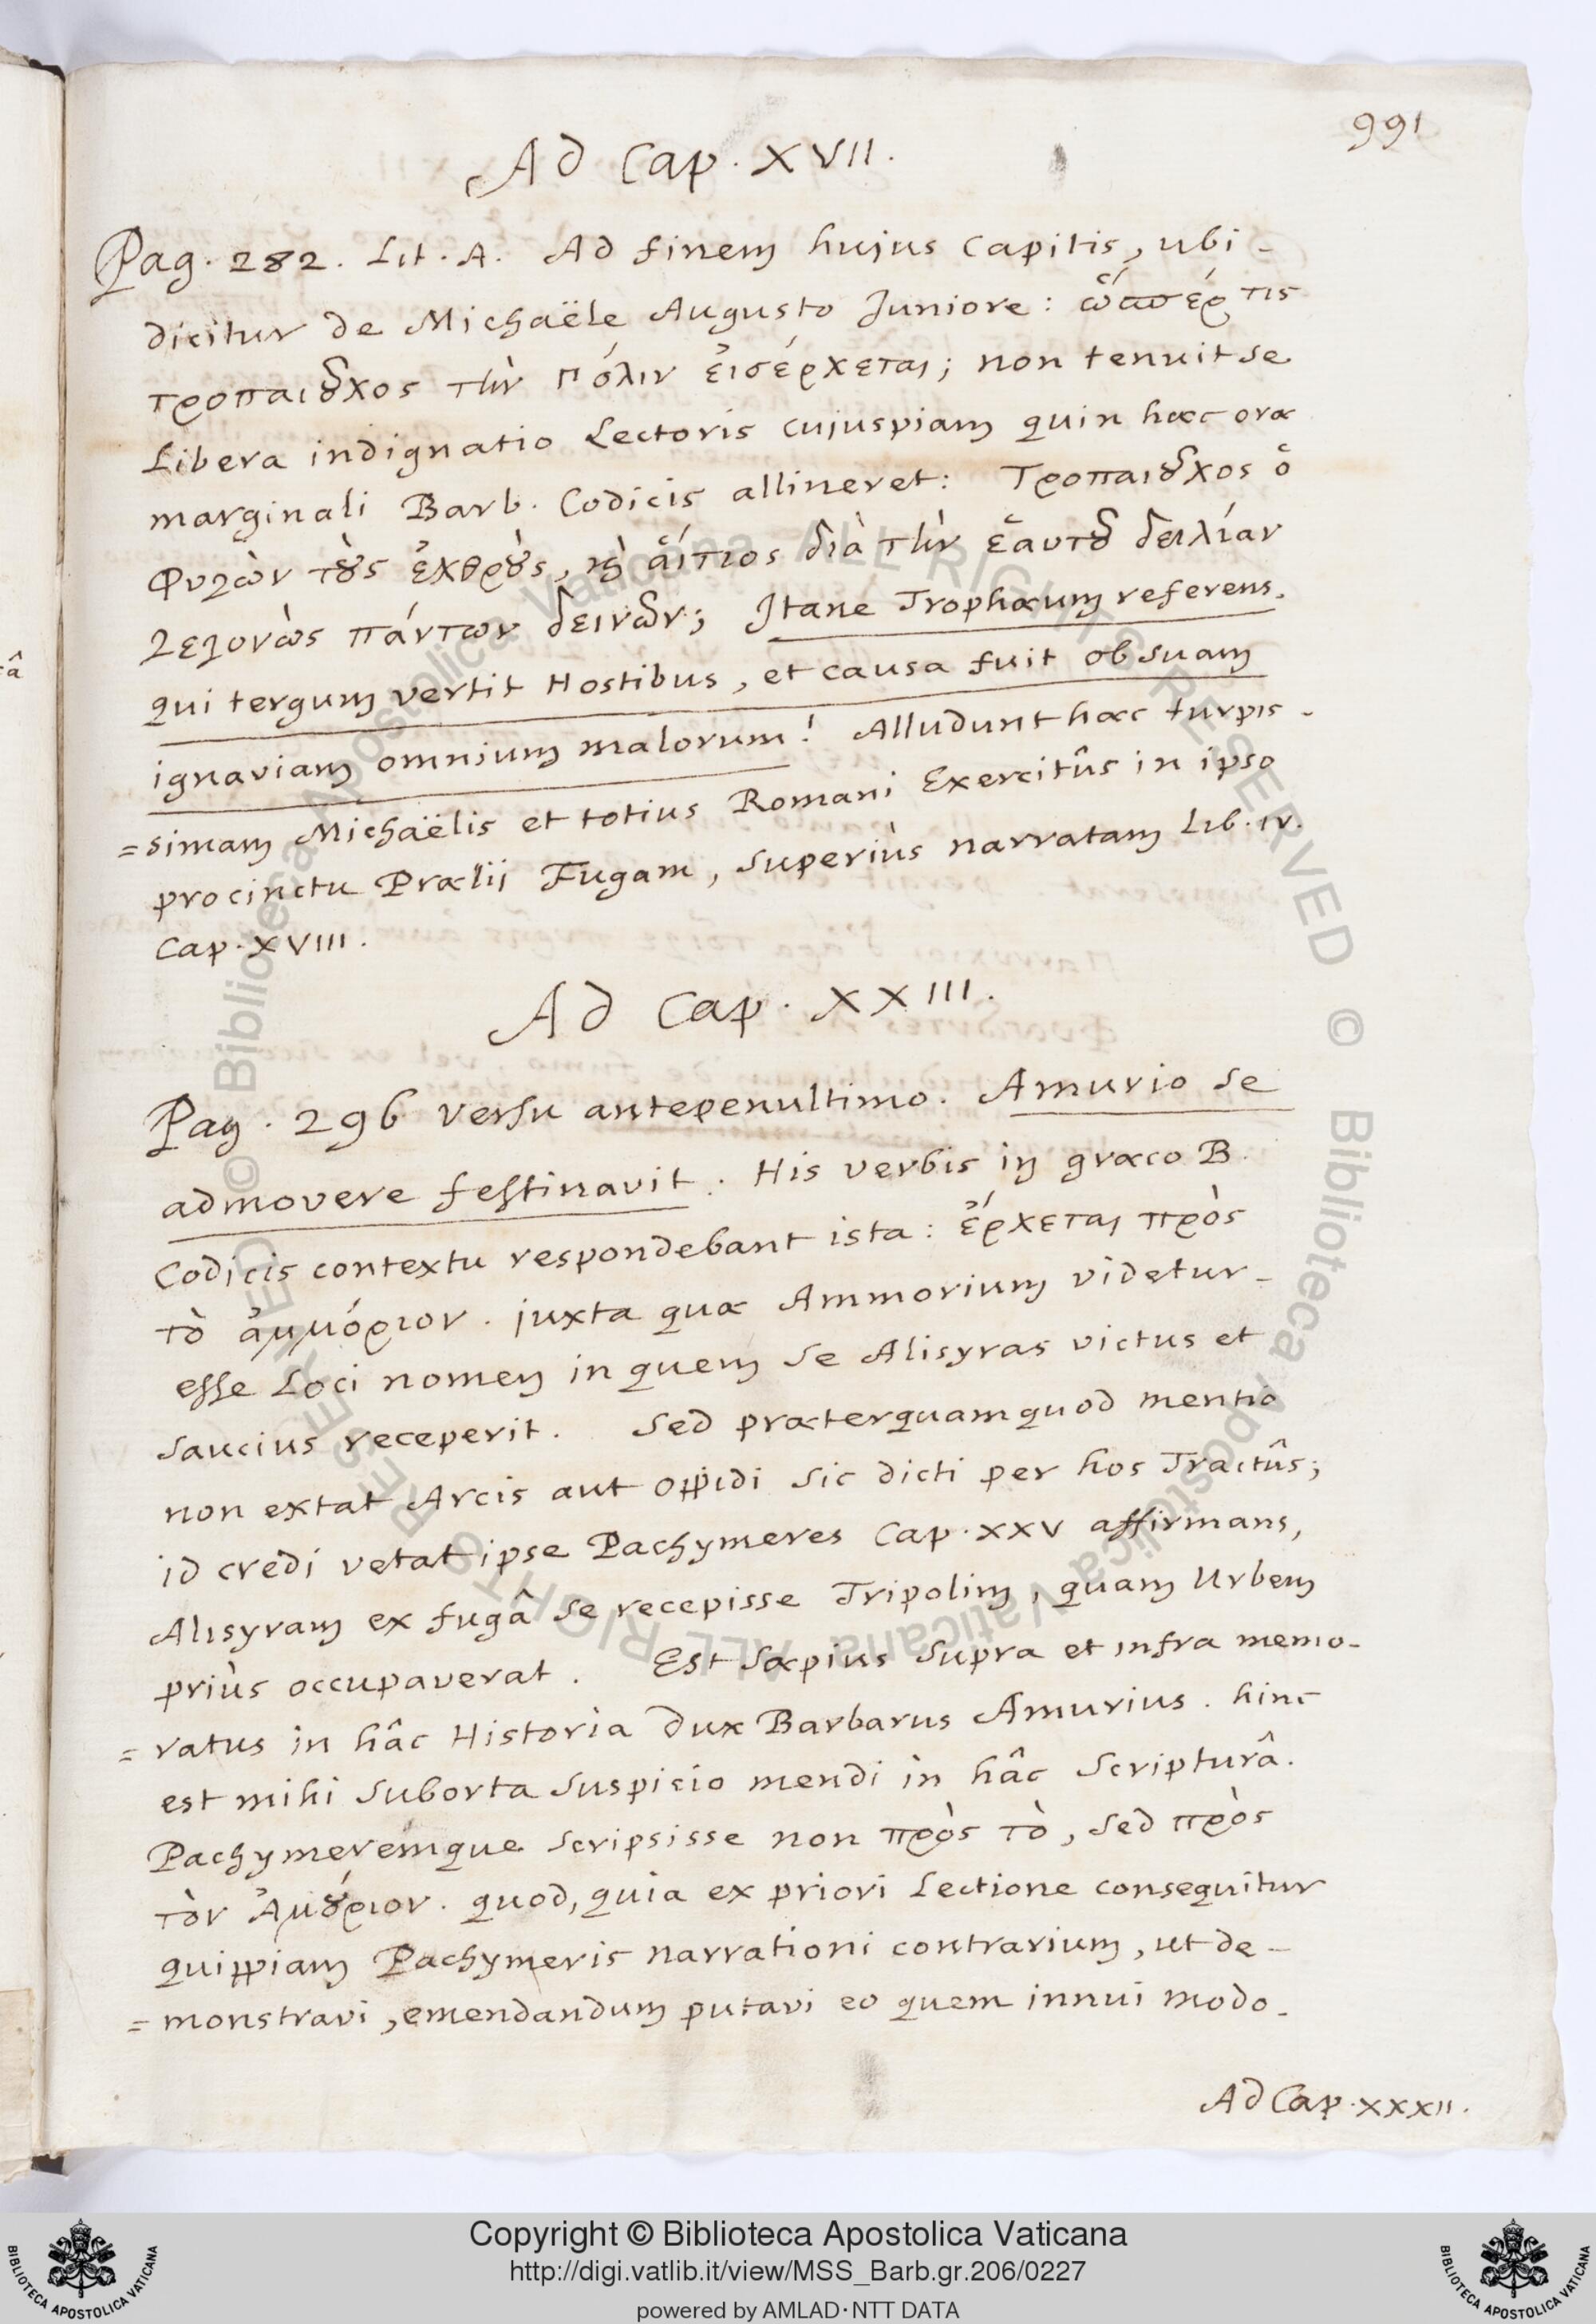 991
Ad Cap. XVII.
Pag. 282. Lit. A. Ad finem hujus Capitis, ubi -
dicitur de Michaële Augusto Juniore: ὥσπερ τις
τροπαιοῦχος τὴν πόλιν εἰσέρχεται; non tenuit se
Libera indignatio Lectoris cujuspiam quin hæc oræ
marginali Barb. Codicis allineret: Τροπαιοῦχος ὁ
φυγὼν τοὺς ἐχθροὺς, καὶ αἴτιος διὰ τὴν ἑαυτοῦ δειλίαν
γεγονὼς πάντων δεινῶν; Itane Trophæum referens.
qui tergum vertit Hostibus, et causa fuit ob suam
ignaviam omnium malorum! Alludunt hæc turpis -
= simam Michaëlis et totius Romani Exercitûs in ipso
procinctu Prælii Fugam, superiùs narratam Lib. IV.
Cap. XVIII.
Ad Cap. XXIII.
Pag. 296 versu antepenultimo. Amurio se
admovere festinavit. His verbis in græco B.
Codicis contextu respondebant ista: ἔρχεται πρὸς
τὸ ἀμμόριον. juxta quæ Ammorium videtur -
esse Loci nomen in quem se Alisyras victus et
saucius receperit. Sed præterquamquod mentio
non extat Arcis aut oppidi sic dicti per hos Tractûs;
id credi vetat ipse Pachymeres Cap. XXV affirmans,
Alisyram ex fugâ se recepisse Tripolim, quam Urbem
priùs occupaverat. Est sæpius supra et infra memo -
= ratus in hâc Historia Dux Barbarus Amurius. hinc
est mihi suborta suspicio mendi in hâc scripturâ.
Pachymeremque scripsisse non πρὸς τὸ, sed πρὸς
τὸν Ἀμούριον. quod, quia ex priori Lectione consequitur
quippiam Pachymeris narrationi contrarium, ut de -
= monstravi, emendandum putavi eo quem innui modo.
Ad Cap. XXXII.
Copyright © Biblioteca Apostolica Vaticana
http://digi.vatlib.it/view/MSS_Barb.gr.206/0227
powered by AMLAD·NTT DATA